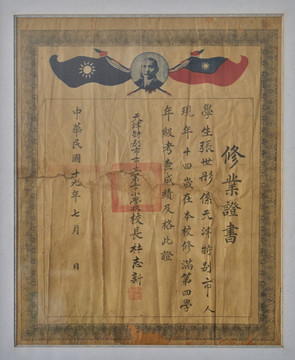 修業證書
學生張世彤係天津特別市人
現年十四歲在本校修滿第四學
年級考查成績及格此證
天津特別市市立第十小學校校長杜志新
中華民國十九年七月 日